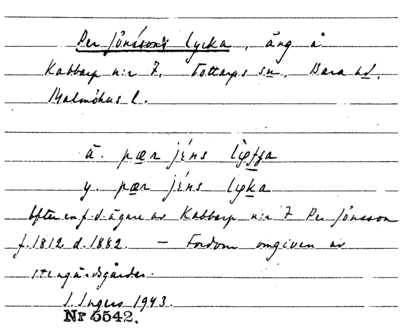 Per Jönssons lycka, äng å
Kabbarp n:r 7, Tottarps sn. Bara hd.
Malmöhus l.
ä. pær jéns
y. pær jéns lyka
Efter en f.d. ägare av Kabbarp n:r 7 Per Jönsson
f. 1812 d. 1882. – Fordom omgiven av
stengärdsgårdar.
I. Ingers 1943.
Nr 5542.